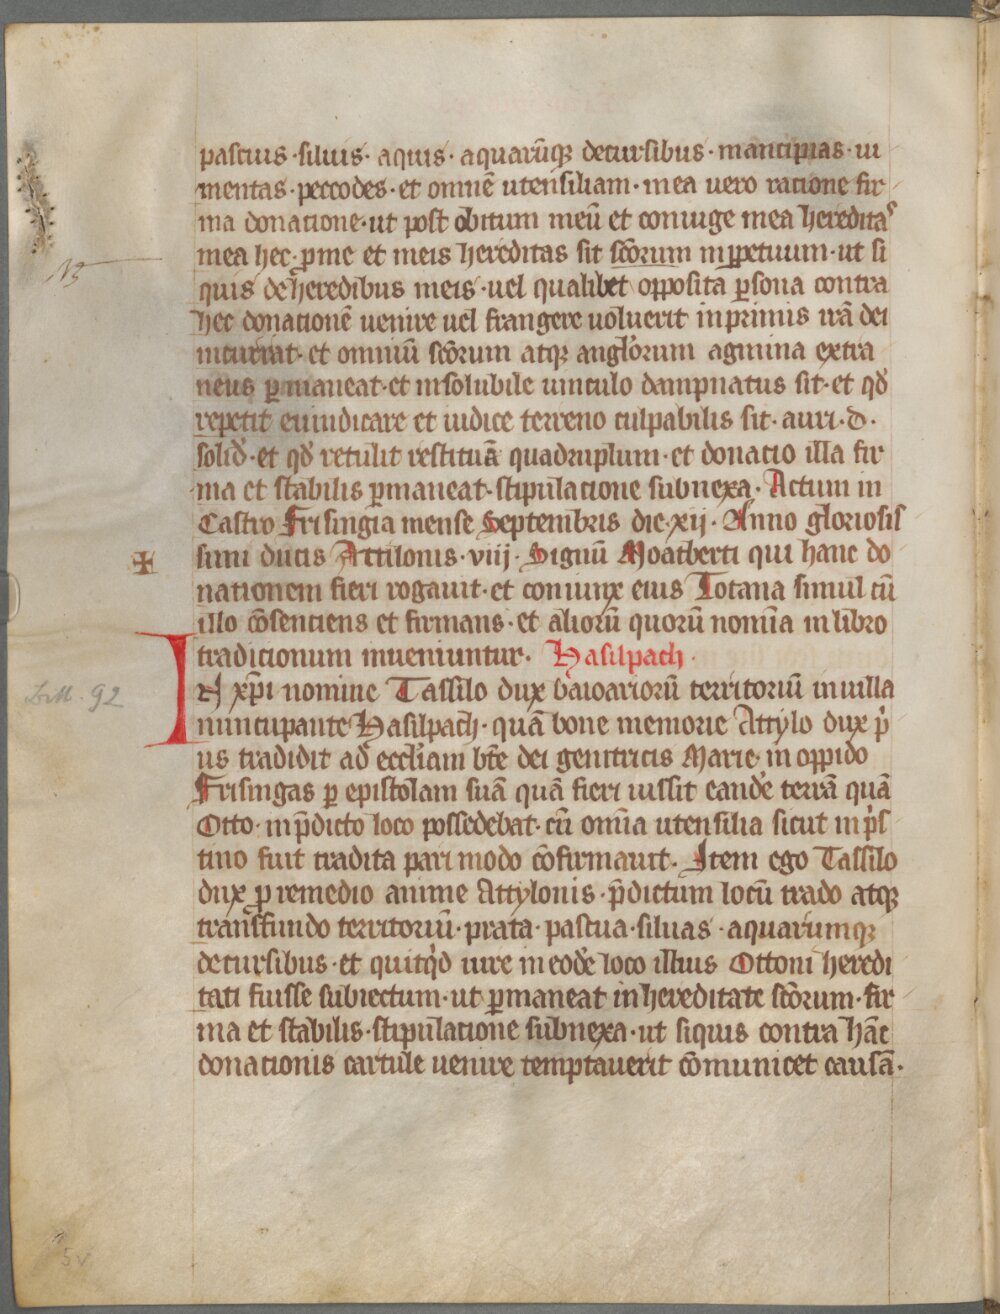 pascuis · siluis · aquis · aquarūqꝫ decursibus · mancipias · iu
mentas · peccodes · et omnē utensiliam · mea uero ratione fir
ma donatione · ut post obitum meū et coniuge mea hereditas
mea hec · ꝑ me et meis hereditas sit sc̄orum inꝑpetuum · ut si
quis de heredibus meis · uel qualibet opposita ꝑsona contra
hec donationē uenire uel frangere uoluerit inprimis irā dei
incurrat · et omniū sc̄orum atqꝫ anglorum agmina extra
neus ꝑmaneat · et insolubile uinculo dampnatus sit · et qd̓
repetit euindicare et iudice terreno culpabilis sit · auri · d ·
solid̓ · et qd̓ retulit restituā quadruplum · et donatio illa fir
ma et stabilis ꝑmaneat · stipulacione subnexa · Actum in
Castro Frisingia mense Septembris die · xij · Anno gloriosis
simi ducis Attilonis · viij · Signū Moatberti qui hanc do
nationem fieri rogauit · et coniunx eius Totana simul cū
illo cōsentiens et firmans · et aliorū quorū nomīa in libro
tradicionum inueniuntur · Hasilpach ·
IN xp̄i nomine Tassilo dux baioariorū territoriū in uilla
nuncupante Hasilpach · quā bone memorie Attylo dux pͥ
us tradidit ad eccl̓iam bt̄e dei genitricis Marie · in oppido
Frisingas ꝑ epistolam suā quā fieri iussit eandē terrā quā
Otto · in p̄dicto loco possedebat · cū omīa utensilia sicut in pͥs
tino fuit tradita pari modo cōfirmauit · Item ego Tassilo
dux ꝓ remedio anime Attylonis · p̄dictum locū trado atqꝫ
transfundo territoriū · prata · pascua · siluas · aquarumqꝫ
decursibus · et quitqͥd iure in eodē loco illius Ottoni heredi
tati fuisse subiectum · ut ꝑmaneat in hereditate sc̄orum · fir
ma et stabilis · stipulacione subnexa · ut siquis contra hāc
donacionis cartule uenire temptauerit cōmunicet causā ·
92
5v